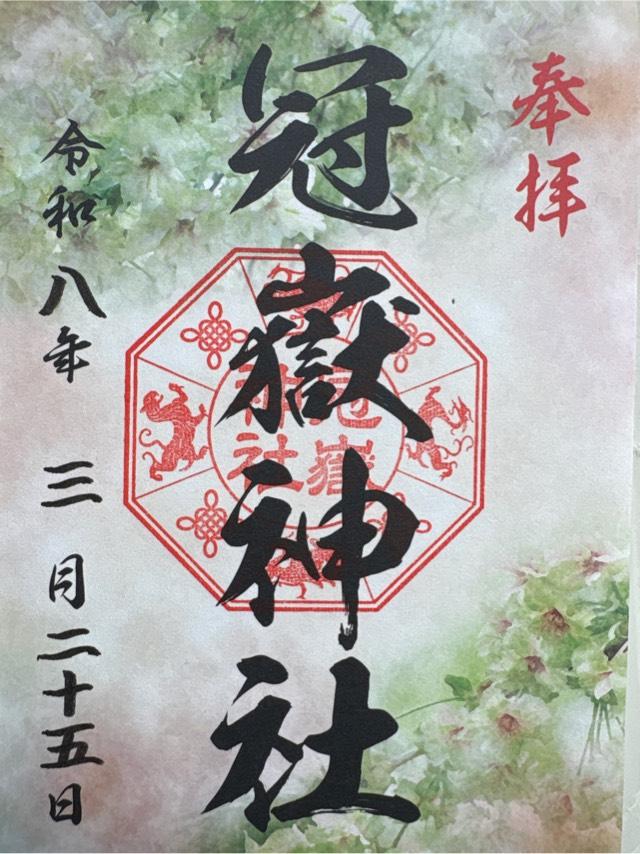 奉拝
冠嶽神社
冠嶽
神社
令和八年 三 月二十五日